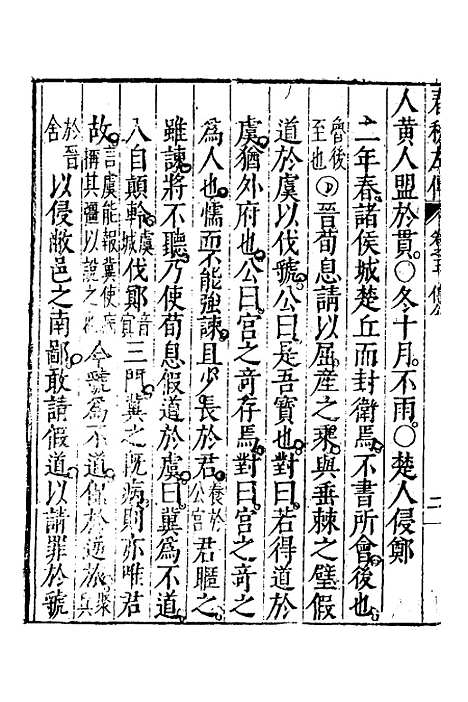 人黄人盟於貫○冬十月不雨○楚人侵鄭
二年春諸侯城楚丘而封衛焉不書所會後也
魯後至也晉荀息請以屈產之乘與垂棘之璧假
道於虞以伐虢公曰是吾寶也對曰若得道於
虞猶外府也公曰宮之奇存焉對曰宮之奇之
爲人也懦而不能強諫且少長於君養於公宮君暱之
雖諫將不聽乃使荀息假道於虞曰冀爲不道
入自顛軨虞城伐鄍音冥三門冀之旣病則亦唯君
故言虞能報冀使病稱其彊以說之今虢爲不道保於逆旅聚
於晉舍以侵敝邑之南鄙敢請假道以請罪於虢